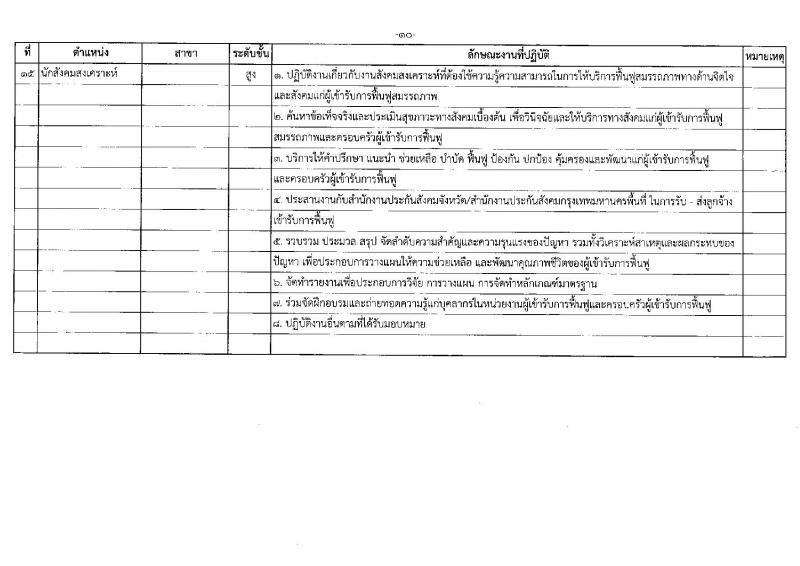 -๑๐-
ที่ ตำแหน่ง สาขา ระดับชั้น ลักษณะงานที่ปฏิบัติ หมายเหตุ
๑๕ นักสังคมสงเคราะห์ สูง ๑. ปฏิบัติงานเกี่ยวกับงานสังคมสงเคราะห์ที่ต้องใช้ความรู้ความสามารถในการให้บริการฟื้นฟูสมรรถภาพทางด้านจิตใจ
และสังคมแก่ผู้เข้ารับการฟื้นฟูสมรรถภาพ
๒. ค้นหาข้อเท็จจริงและประเมินสุขภาวะทางสังคมเบื้องต้น เพื่อวินิจฉัยและให้บริการทางสังคมแก่ผู้เข้ารับการฟื้นฟู
สมรรถภาพและครอบครัวผู้เข้ารับการฟื้นฟู
๓. บริการให้คำปรึกษา แนะนำ ช่วยเหลือ บำบัด ฟื้นฟู ป้องกัน ปกป้อง คุ้มครองและพัฒนาแก่ผู้เข้ารับการฟื้นฟู
และครอบครัวผู้เข้ารับการฟื้นฟู
๔. ประสานงานกับสำนักงานประกันสังคมจังหวัด/สำนักงานประกันสังคมกรุงเทพมหานครพื้นที่ ในการรับ - ส่งลูกจ้าง
เข้ารับการฟื้นฟู
๕. รวบรวม ประมวล สรุป จัดลำดับความสำคัญและความรุนแรงของปัญหา รวมทั้งวิเคราะห์สาเหตุและผลกระทบของ
ปัญหา เพื่อประกอบการวางแผนให้ความช่วยเหลือ และพัฒนาคุณภาพชีวิตของผู้เข้ารับการฟื้นฟู
๖. จัดทำรายงานเพื่อประกอบการวิจัย การวางแผน การจัดทำหลักเกณฑ์มาตรฐาน
๗. ร่วมจัดฝึกอบรมและถ่ายทอดความรู้แก่บุคลากรในหน่วยงานผู้เข้ารับการฟื้นฟูและครอบครัวผู้เข้ารับการฟื้นฟู
๘. ปฏิบัติงานอื่นตามที่ได้รับมอบหมาย